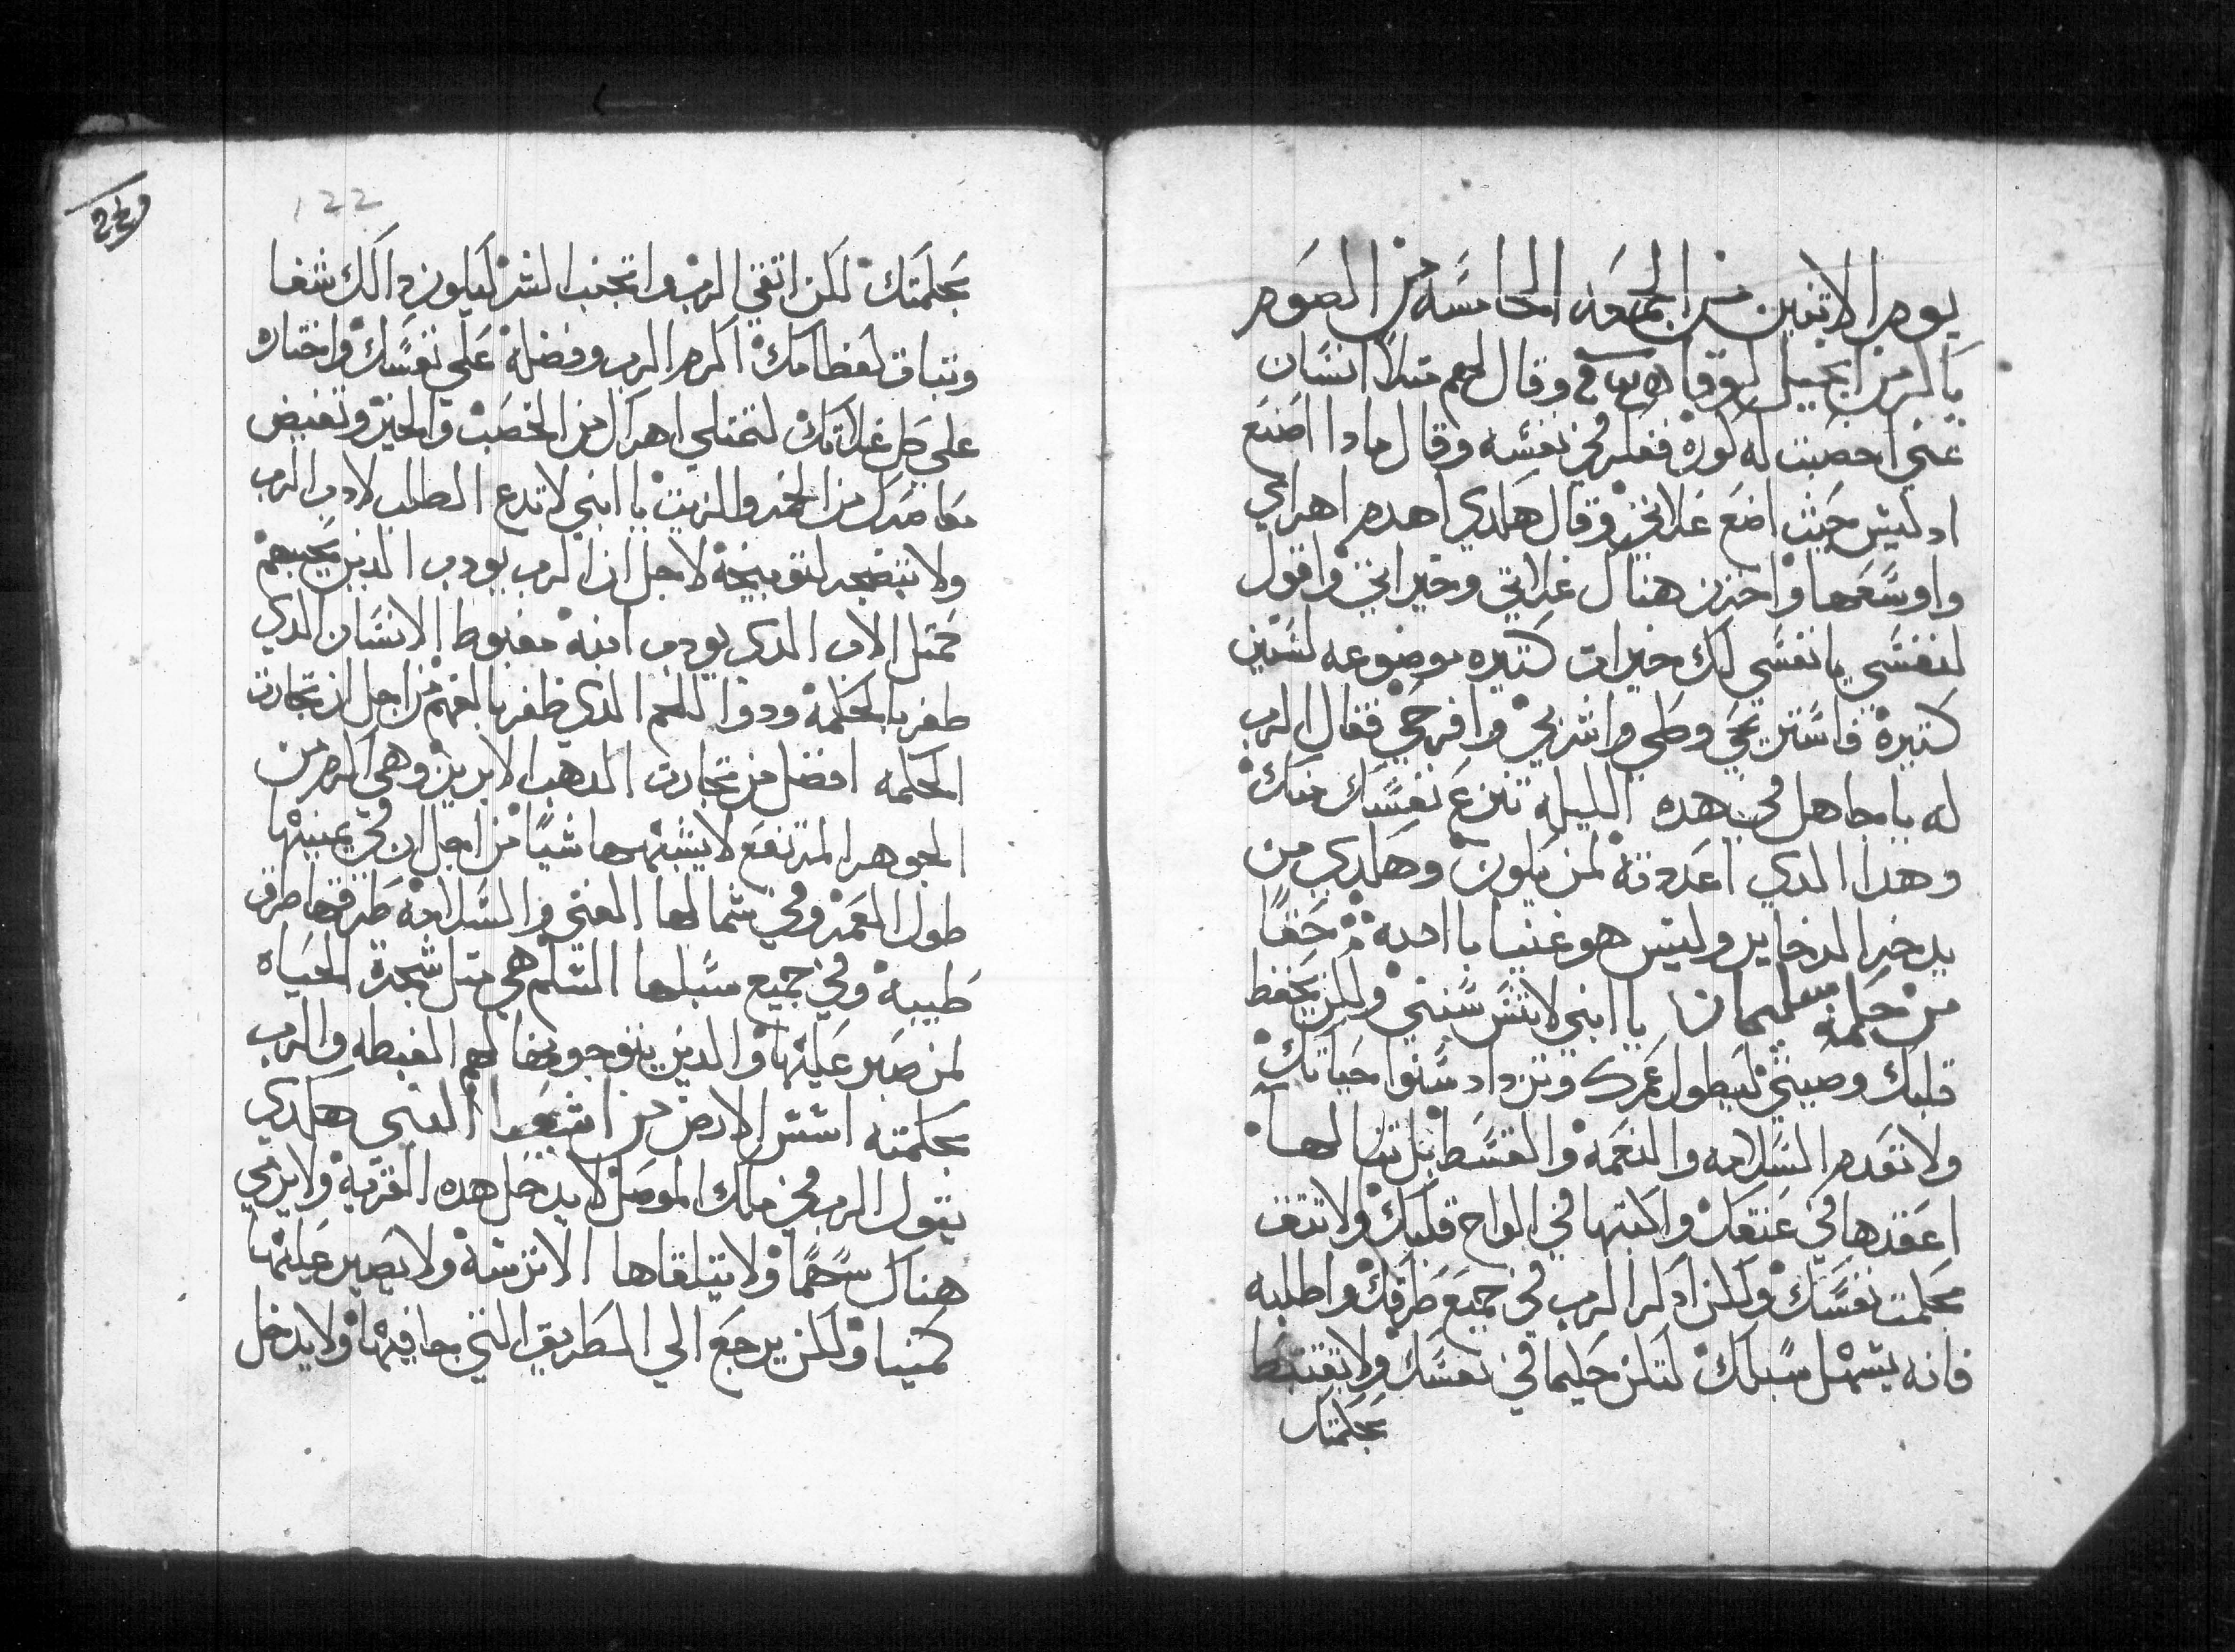 يوم الاتنين من الجمعه الخامسه من الصوم
باكر من انجيل لوقا وقال لهم متلاً انسان
غني اخصبت له كوره ففكر في نفسه وقال مادا اصنع
اد ليس حيث اضع غلاتي وقال هكدي اهدم اهراي
واوسعها واخزن هناك غلاتي وخيراتي واقول
لنفسي يا نفسي لك خيرات كتيره موضوعه لسنين
كتيرة فاستريحي وكلي واشربي وافرحي فقال الرب
له يا جاهل في هده الليله تنزع نفسك منك
وهدا الدي اعددته لمن يكون وهكدي من
يدخر الدخاير وليس هو غنيا باالله حقا
من حكمة سليمان يا ابني لا تنس سنني وليكن يحفظ
قلبك وصيتي ليطول عمرك وتزداد سنوا حياتك
ولا تعدم السلامه والنعمه والقسط بل تنالها
اعقدها في عنقك واكتبها في الواح قلبك ولا تتق
بحكمت نفسك ولكن ادكر الرب في جميع طرقك واطلبه
فانه يسهل سبلك لتكن حكيما في نفسك ولا تغتبط
بحكمتك
122
بحكمتك لكن اتقي الرب واتجنب الشر ليكون دالك شفا
ونباتا لعظامك اكرم الرب وفضله علي نفسك واختاره
علي كل غلاتك لتمتلي اهراك من الخصب والخير وتفيض
معاصرك من الخمر والزيت يا ابني لا تدع الطلب لادب الرب
ولا تنضجر لتوبيخه لاجل ان الرب يودب الدين يحبهم
كمتل الاب الدي يودب ابنه مغبوط الانسان الدي
ظفر بالحكمه ودوا اللحم الدي ظفر بالفهم من اجل ان تجارت
الحكمه افضل من تجارت الدهب الابريز وهي اكرم من
الجوهر المرتفع لا يشبهها شياً من اجل ان في يمينها
طول العمر وفي شمالها الغني والسلامه طرقها طرق
طيبه وفي جميع سبلها السلم هي متل شجرة الحياه
لمن صبر عليها والدين يتوجو بها لهم الغبطه والرب
بحكمته اسس الارض من اشعيا النبي هكدي
يقول الرب في ملك الموصل لا يدخل هده القرية ولا يرمي
هناك سهماً ولا يتلقاها الا بترسه ولا يصير عليها
كمينا ولكن يرجع الي الطريق التي جا فيها ولا يدخل